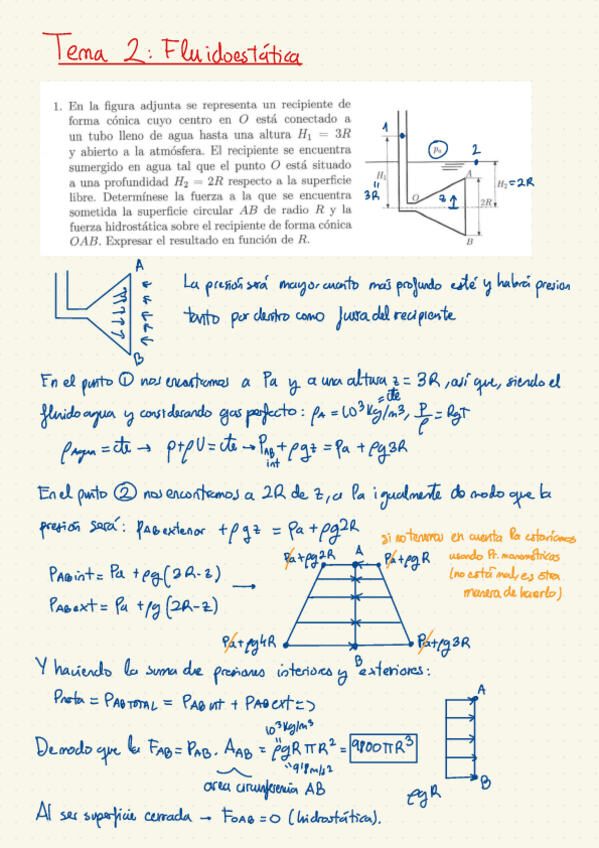 Tema 2: Fluidoestática
1. En la figura adjunta se representa un recipiente de
forma cónica cuyo centro en O está conectado a
un tubo lleno de agua hasta una altura H₁ = 3R
y abierto a la atmósfera. El recipiente se encuentra
sumergido en agua tal que el punto O está situado
a una profundidad H₂ = 2R respecto a la superficie
libre. Determínese la fuerza a la que se encuentra
sometida la superficie circular AB de radio R y la
fuerza hidrostática sobre el recipiente de forma cónica
OAB. Expresar el resultado en función de R.
1 pₐ 2
H₁ A H₂ =2R
" 3R O z 2R
B
A
B
La presión será mayor cuanto más profundo esté y habrá presion
tanto por dentro como fuera del recipiente
En el punto ① nos encontramos a Pa y a una altura z = 3R, así que, siendo el
fluido agua y considerando gas perfecto: ρA = cte = 10³ Kg/m³, P/ρ = RgT
ρAgua = cte → p+ρU = cte → PAB int + ρgz = Pa + ρg3R
En el punto ② nos encontramos a 2R de z, a Pa igualmente de modo que la
presión será: PAB exterior + ρgz = Pa + ρg2R
si no tenemos en cuenta Pa estaríamos
usando Pr. manométricas
(no está mal, es otra
manera de hacerlo)
PAB int = Pa + ρg(3R-z) →
PAB ext = Pa + ρg(2R-z)
Pa+ρg2R A Pa+ρgR
Pa+ρg4R B Pa+ρg3R
Y haciendo la suma de presiones interiores y exteriores:
Pneta = PAB TOTAL = PAB int + PAB ext =>
De modo que la FAB = PAB · AAB = ρgRπR² = 9800πR³
10³ Kg/m³
"9'8 m/s²
area circunferencia AB
A
B
ρgR
Al ser superficie cerrada → FOAB = 0 (hidrostática).